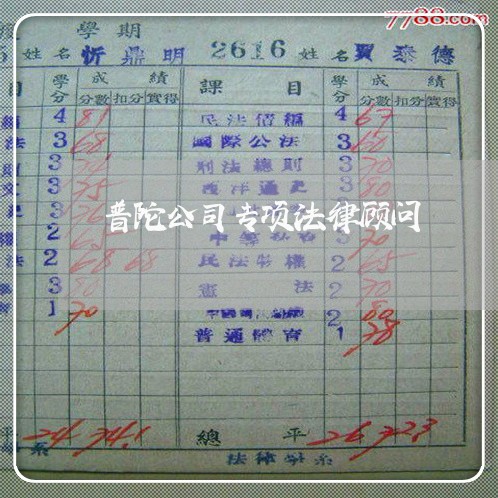 7788.com
學期
5 姓名 忻鼎明 2616 姓名 賈泰德
目 學分 成績 課目 學分 成績
分數 扣分 實得 分數 扣分 實得
4 81 民法債編 4 67
法 3 68 國際公法 3 60
3 刑法總則 3 70
3 75 西洋通史 3 80
普陀公司专项法律顾问
2 65 3 70
法 2 68 68 民法物權 2 65
3 80 憲法 2 70
1 70 2 80
普通體育 1 78
平 24 74.1 總平 26 72.3
系 法律學系